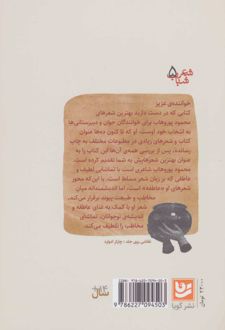 شعر شباب ۵
خواننده‌ی عزیز
کتابی که در دست دارید بهترین شعرهای
محمود پوروهاب برای خوانندگان جوان و دبیرستانی‌ها
به انتخاب خود اوست. او که تا کنون ده‌ها عنوان
کتاب و شعرهای زیادی در مطبوعات مختلف به چاپ
رسانده، پس از بررسی همه‌ی آن‌ها این کتاب را به
عنوان بهترین شعرهایش به شما تقدیم کرده است.
محمود پوروهاب شاعری است با تماشایی لطیف و
عاطفی که بر زبان شعر مسلط است. با این که محور
شعرهای او «عاطفه» است، اما اندیشمندانه میان
مخاطب و طبیعت پیوند برقرار می‌کند.
شعر او با کمک به غنای عاطفه و
اندیشه‌ی نوجوانان، تماشای
مخاطب را تلطیف می‌کند.
نقاشی روی جلد: چارلز ادوارد
سال
9 786227 094503
نشر گویا
۲۳۰۰۰ تومان